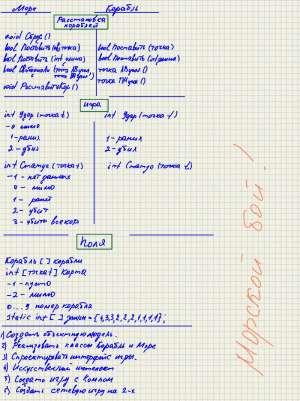 Море Корабль
Расстановка кораблей
void Сброс()
bool Поставить(точка)
bool Поставить(int длина)
точка Вдуло()
Игра
int Удар(точка t) int Удар(точка t)
-0 мимо
1-ранил 1-ранил
2-убил 2-убил
int Статус(точка t) int Статус(точка t)
-1 - нет данных
0 - мимо
1 - ранил
2 - убит
3 - убиты все кор
Поля
Корабль[] корабли
int[точка] карта
-1 - пусто
-2 - мимо
0...9 номер корабля
static int[] длин = {4,3,3,2,2,2,1,1,1,1};
1) Создать объектную модель.
2) Реализовать классы Корабль и Море
3) Спроектировать интерфейс игры.
4) Искусственный интеллект
5) Создать игру с компом
6) Создать сетевую игру на 2-х
Морской бой!